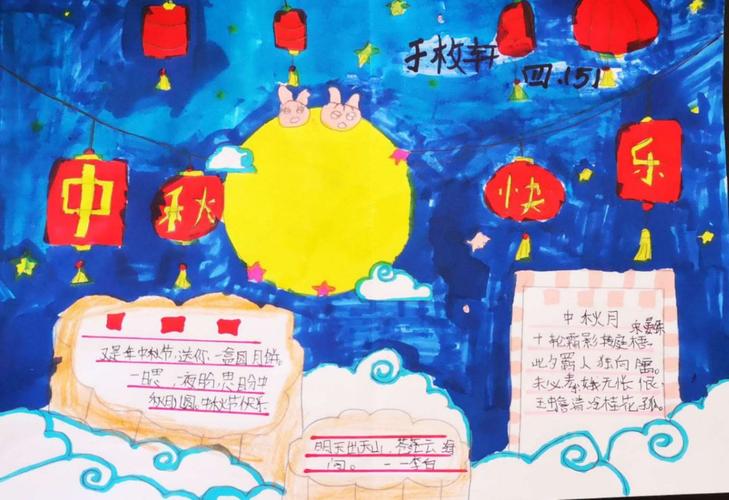 于枚轩
四.(5)
中秋快乐
又是年中秋节,送你一盒圆月饼。
一思,一夜盼,思盼中
秋 圆,中秋节快乐
明天出天山,苍茫云海
间。——李白
中秋月 宋晏殊
十轮霜影转庭梧。
此夕羁人独向隅。
未必素娥无怅恨,
玉蟾清冷桂花孤。